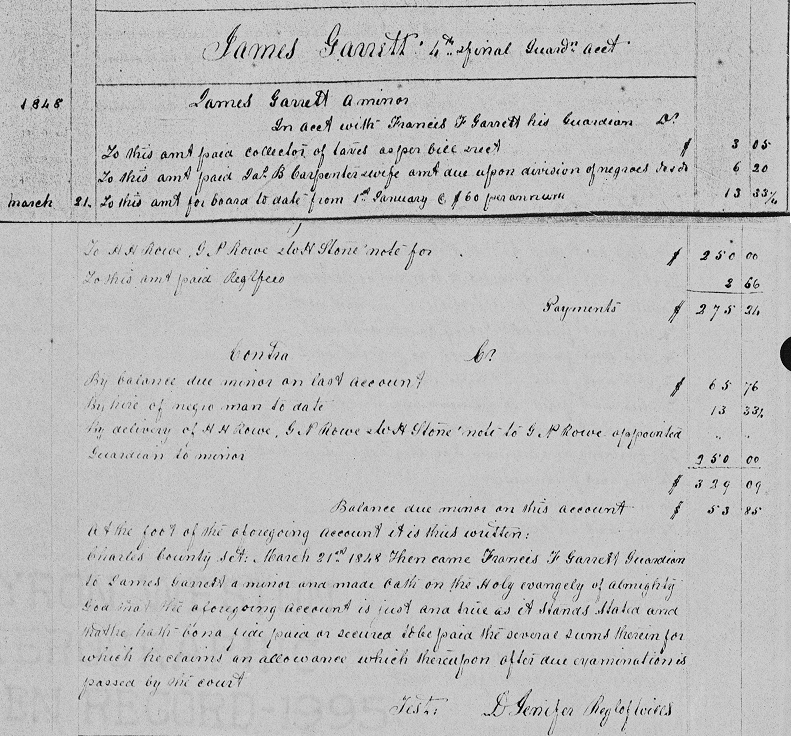 James Garrett 4th & final Guardn acct
1848 James Garrett a minor
In acct with Francis F Garrett his Guardian Dr
To this amt paid collector of taxes as per bill & rect $ 3 05
To this amt paid Jas B Carpenter & wife amt due upon division of negroes 6 20
March 21. To this amt for board to date from 1st January @ $60 per annum 13 33 1/3
To H H Rowe, G N Rowe & W H Stone' note for $ 250 00
To this amt paid Regr fees 2 66
Payments $ 275 24
Contra Cr
By balance due minor on last account $ 65 76
By hire of negro man to date 13 33 1/3
By delivery of H H Rowe, G N Rowe & W H Stone' note to G N Rowe appointed " "
Guardian to minor 250 00
$ 329 09
Balance due minor on this account $ 53 85
At the foot of the aforegoing account it is thus written:
Charles County sct: March 21st 1848 Then came Francis F Garrett Guardian
to James Garrett a minor and made oath on the Holy evangely of Almighty
God that the aforegoing account is just and true as it stands stated and
that he hath bona fide paid or secured to be paid the several sums therein for
which he claims an allowance which thereupon after due examination is
passed by the court
Test: D Jenifer Reg of wills